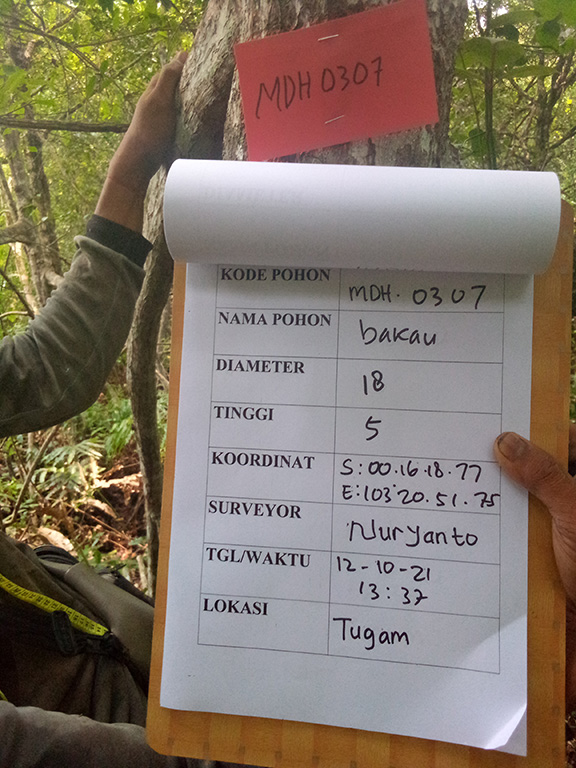 MDH 0307
KODE POHON MDH. 0307
NAMA POHON bakau
DIAMETER 18
TINGGI 5
KOORDINAT S:00.16.18.77
E:103°20.51.75
SURVEYOR Nuryanto
TGL/WAKTU 12-10-21
13:37
LOKASI Tugam